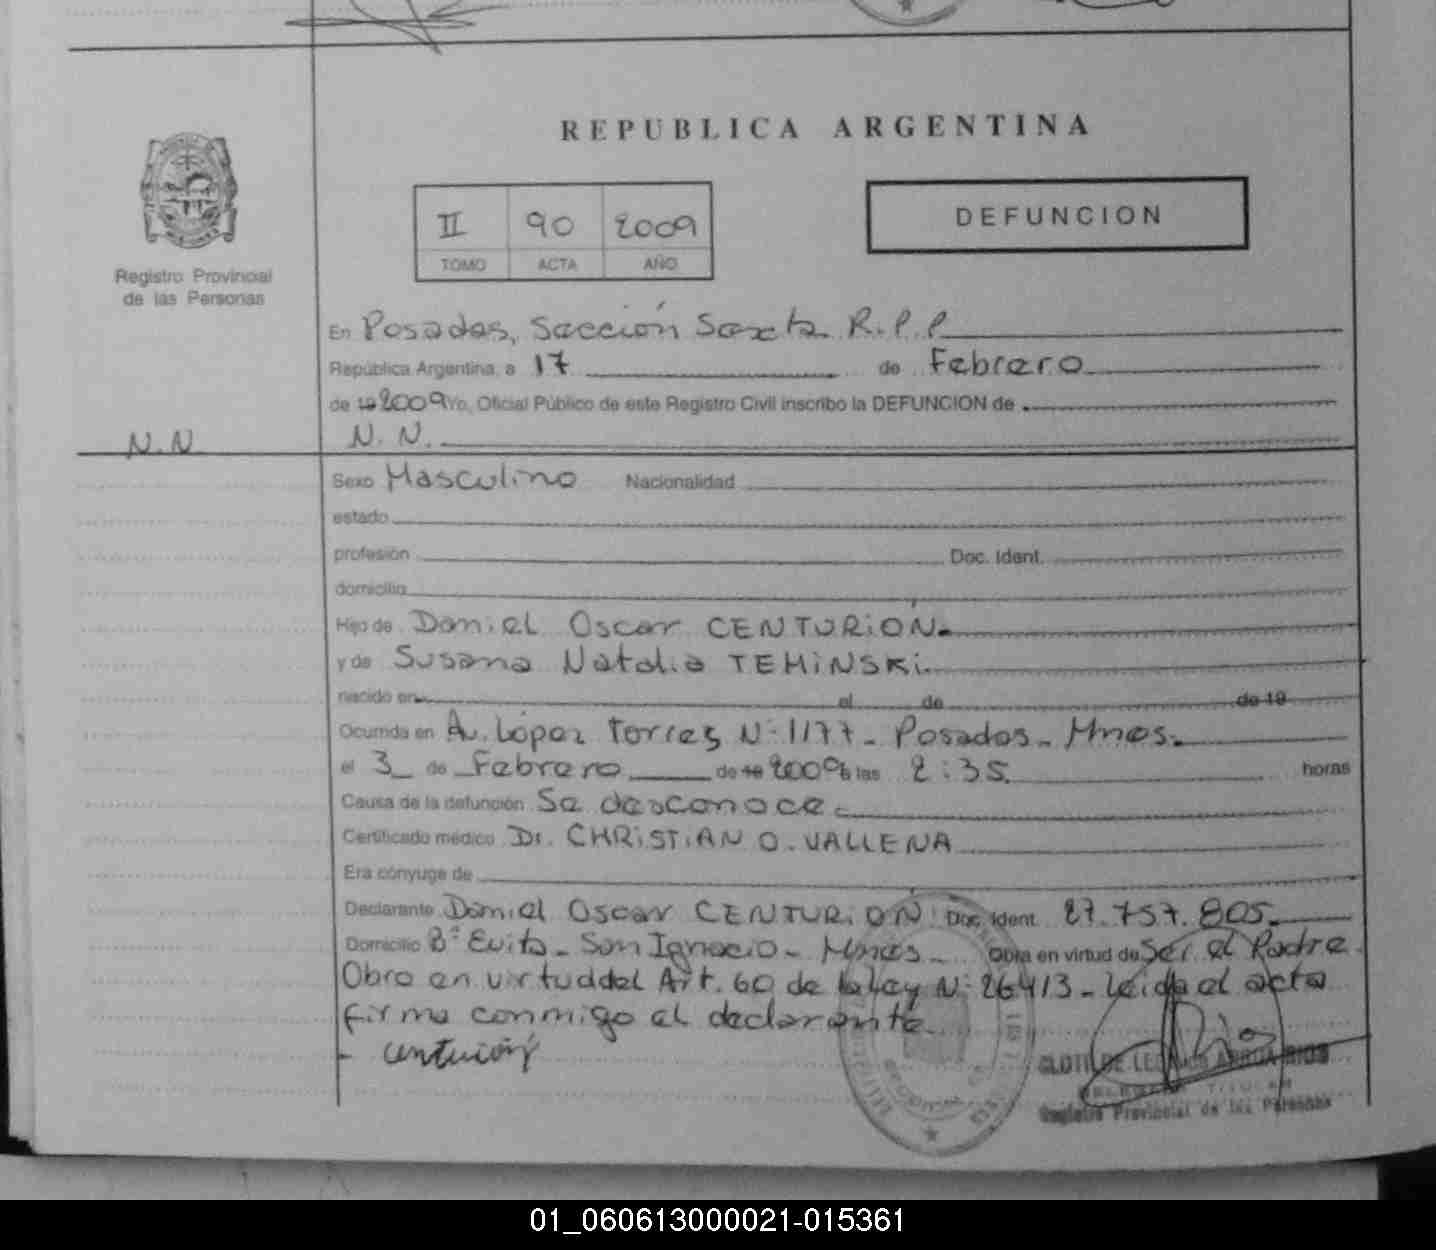 REPUBLICA ARGENTINA
II 90 2009
TOMO ACTA AÑO
DEFUNCION
Registro Provincial
de las Personas
En Posadas, Sección Sexta R.P.P
República Argentina, a 17 de Febrero
de 19 2009 Yo, Oficial Público de este Registro Civil inscribo la DEFUNCION de
N.N. N.N.
Sexo Masculino Nacionalidad
estado
profesión Doc. Ident.
domicilio
Hijo de Daniel Oscar CENTURIÓN.
y de Susana Natalia TEMINSKI
nacido en el de de 19
Ocurrida en Av. López Torres Nº 1177 - Posados - Mnes.
el 3 de Febrero de 19 2009 a las 2:35 horas
Causa de la defunción Se desconoce
Certificado médico Dr. CHRISTIAN O. VALLENA
Era cónyuge de
Declarante Daniel Oscar CENTURION Doc. Ident. 27.757.805
Domicilio Bº Evita - San Ignacio - Mnes - Obra en virtud de Ser el Padre
Obro en virtud del Art. 60 de la Ley Nº 26413 - Leida el acta
firma conmigo el declarante
centurión
RIOS
Registro Provincial de las Personas
01_060613000021-015361